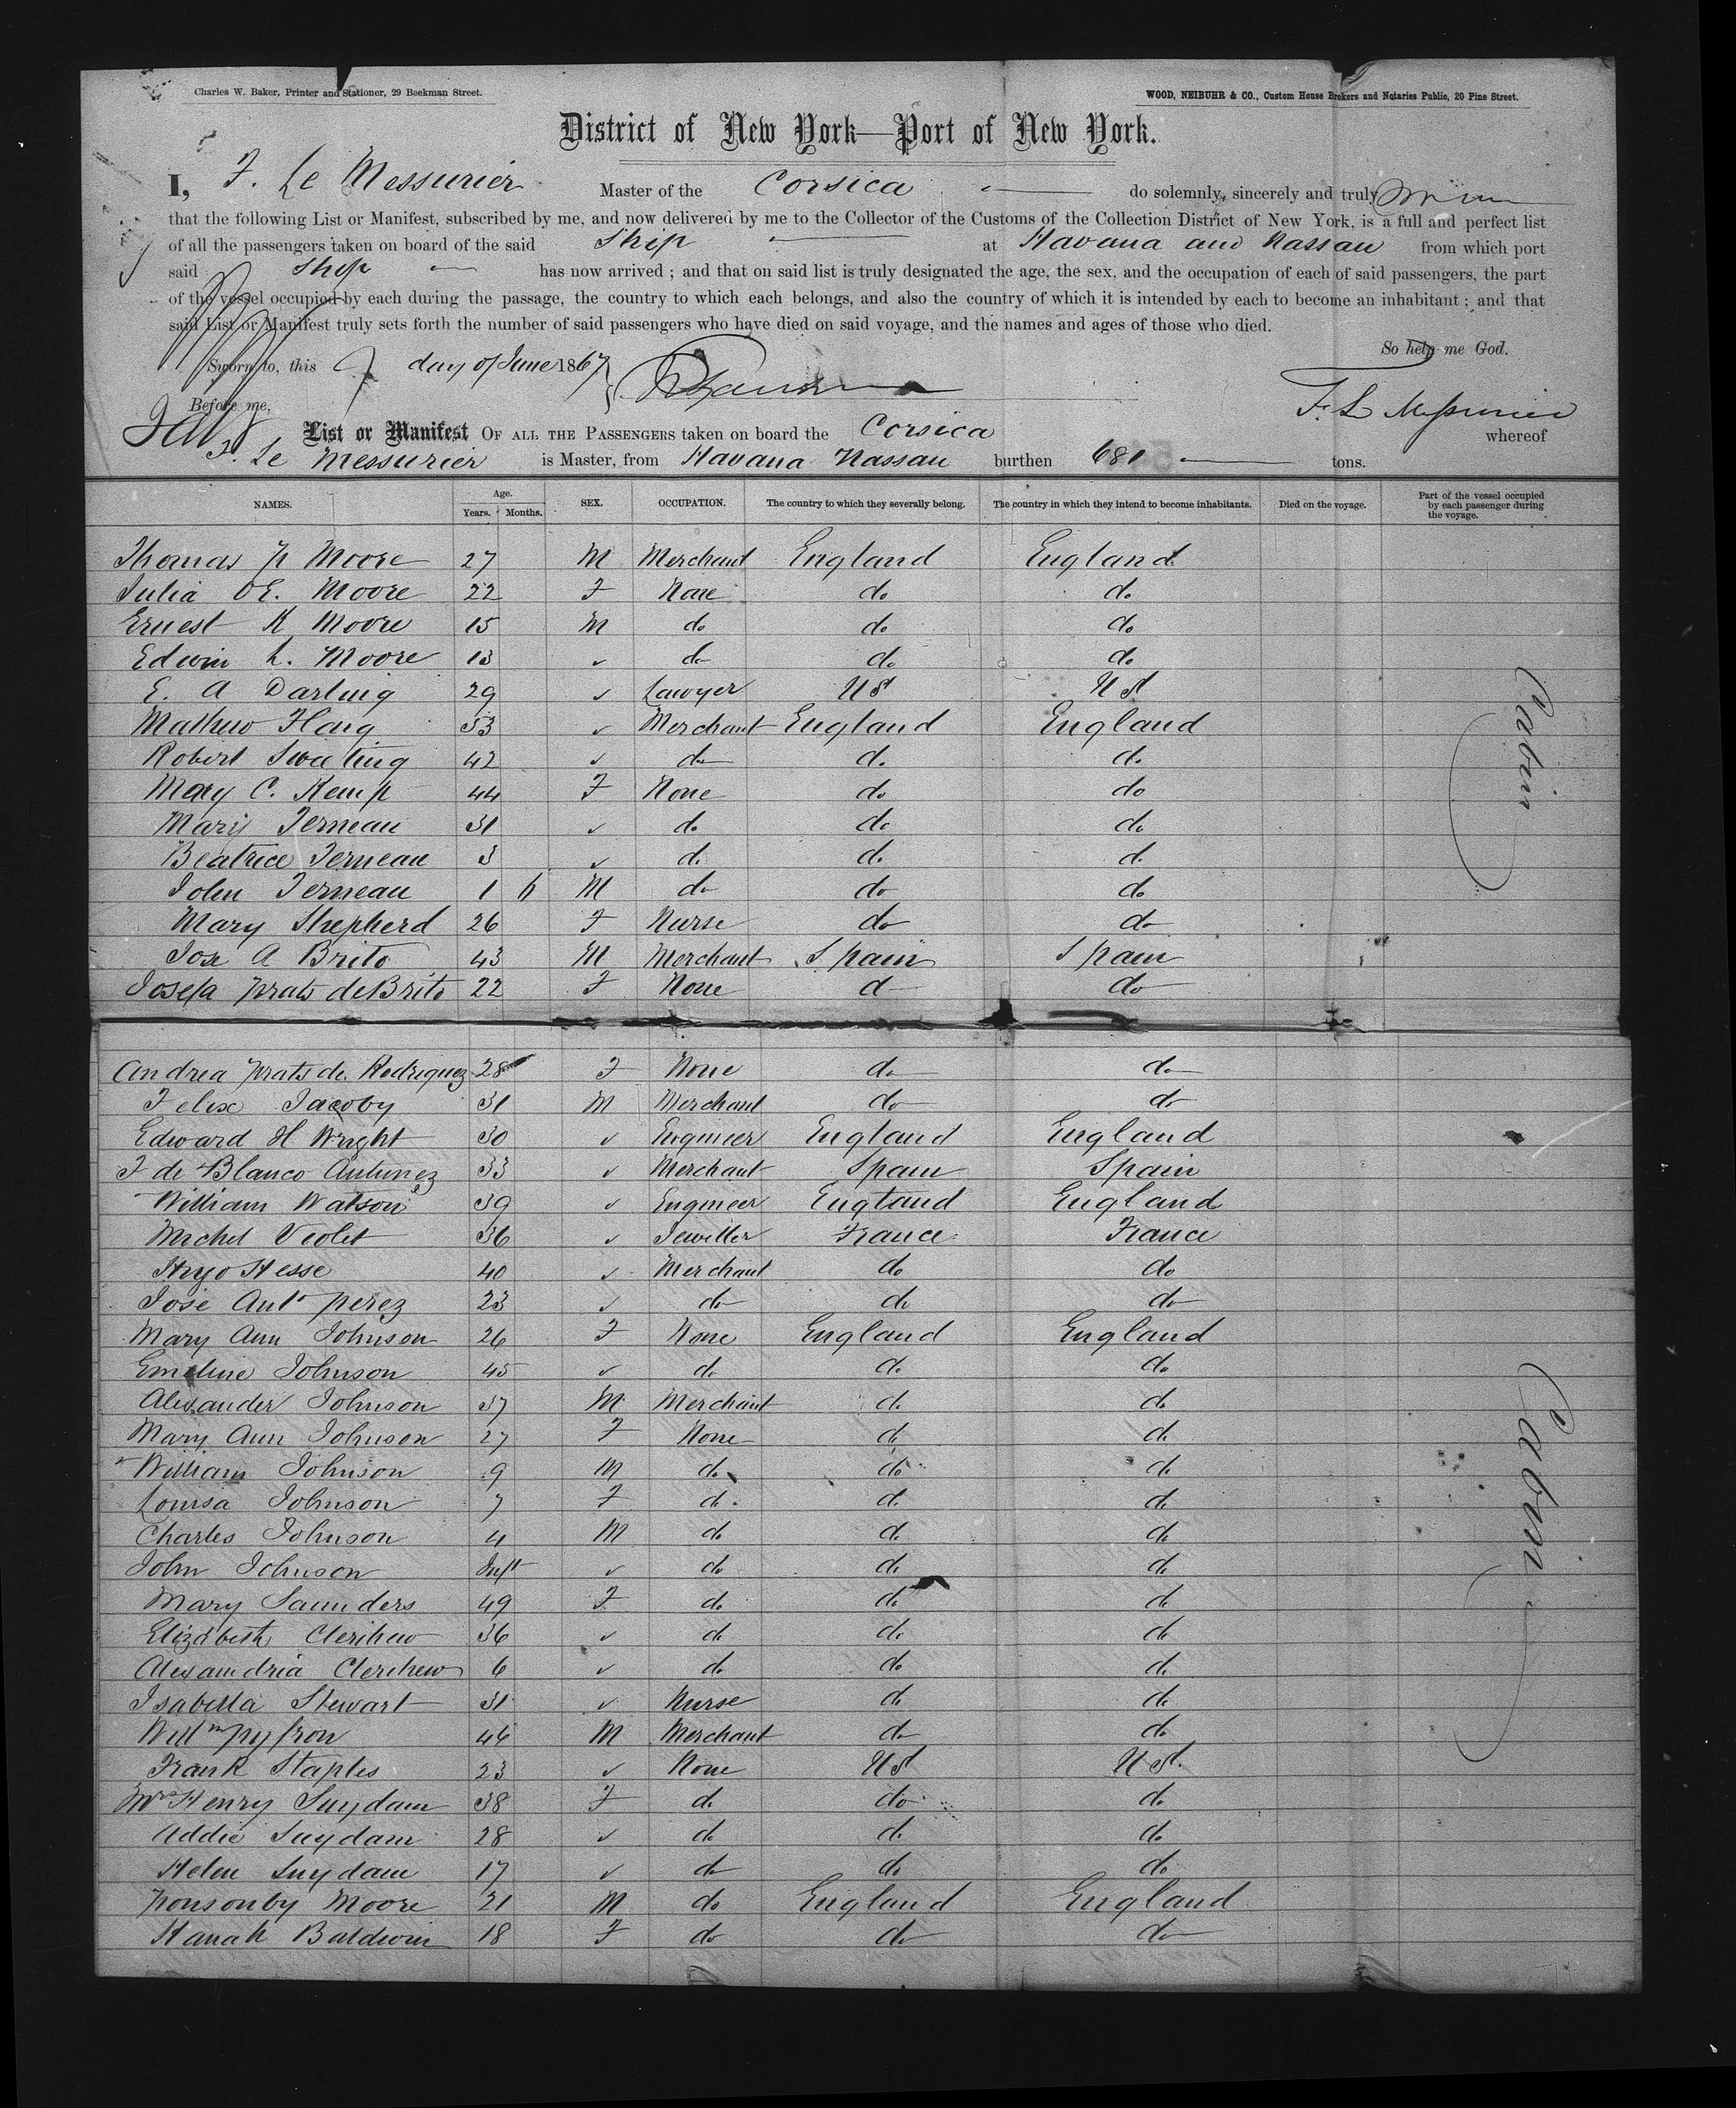 Charles W. Baker, Printer and Stationer, 29 Beekman Street.
WOOD, NEIBUHR & CO., Custom House Brokers and Notaries Public, 20 Pine Street.
District of New York—Port of New York.
I, F. Le Messurier Master of the Corsica do solemnly, sincerely and truly
that the following List or Manifest, subscribed by me, and now delivered by me to the Collector of the Customs of the Collection District of New York, is a full and perfect list
of all the passengers taken on board of the said Ship at Havana and Nassau from which port
said Ship has now arrived ; and that on said list is truly designated the age, the sex, and the occupation of each of said passengers, the part
of the vessel occupied by each during the passage, the country to which each belongs, and also the country of which it is intended by each to become an inhabitant ; and that
said List or Manifest truly sets forth the number of said passengers who have died on said voyage, and the names and ages of those who died.
So help me God.
Sworn to, this day of June 1867
Before me,
F. Le Messurier
List or Manifest OF ALL THE PASSENGERS taken on board the Corsica whereof
F. Le Messurier is Master, from Havana Nassau burthen 681 tons.
NAMES. Age. Years. Months. SEX. OCCUPATION. The country to which they severally belong. The country in which they intend to become inhabitants. Died on the voyage. Part of the vessel occupied by each passenger during the voyage.
Thomas P Moore 27 M Merchant England England
Julia E. Moore 22 F None do do
Ernest K Moore 15 M do do do
Edwin L. Moore 13 ✓ do do do
E. A Darling 29 ✓ Lawyer US US
Mathew Haig 53 ✓ Merchant England England
Robert Sweeting 42 ✓ do do do
Mary C. Kemp 44 F None do do
Mary Terneau 31 ✓ do do do
Beatrice Terneau 3 ✓ do do do
John Terneau 1 M do do do
Mary Shepherd 26 F Nurse do do
Jose A Brito 43 M Merchant Spain Spain
Josefa Prats de Brito 22 F None do do
Cabin
Andrea Prats de Rodriguez 28 F None do do
Felix Jacoby 31 M Merchant do do
Edward H Wright 30 ✓ Engineer England England
F de Blanco Antunez 33 ✓ Merchant Spain Spain
William Watson 39 ✓ Engineer England England
Michel Violet 36 ✓ Jeweller France France
Hugo Hesse 40 ✓ Merchant do do
Jose Anto Perez 23 ✓ do do do
Mary Ann Johnson 26 F None England England
Emeline Johnson 45 ✓ do do do
Alexander Johnson 37 M Merchant do do
Mary Ann Johnson 27 F None do do
William Johnson 9 M do do do
Louisa Johnson 7 F do do do
Charles Johnson 4 M do do do
John Johnson Inft ✓ do do do
Mary Saunders 49 F do do do
Elizabeth Clerihew 36 ✓ do do do
Alexandria Clerihew 6 ✓ do do do
Isabella Stewart 31 ✓ Nurse do do
Willm Pyfron 46 M Merchant do do
Frank Staples 23 ✓ None US US
Mrs Henry Suydam 38 F do do do
Addie Suydam 28 ✓ do do do
Helen Suydam 17 ✓ do do do
Ponsonby Moore 21 M do England England
Hanah Baldwin 18 F do do do
Cabin